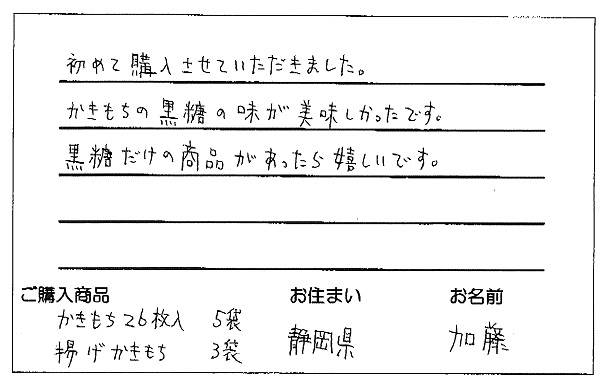 初めて購入させていただきました。
かきもちの黒糖の味が美味しかったです。
黒糖だけの商品があったら嬉しいです。
ご購入商品 お住まい お名前
かきもち26枚入 5袋 静岡県 加藤
揚げかきもち 3袋